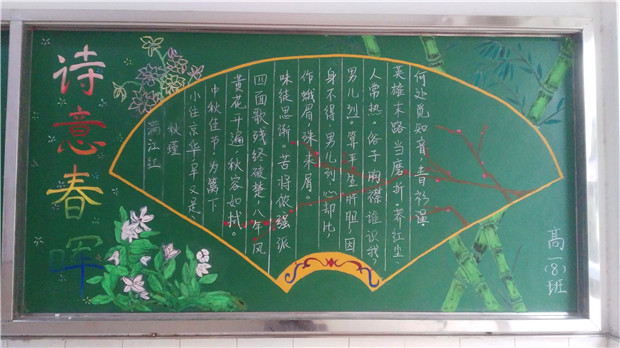 诗意春晖
满江红
秋瑾
小住京华,早又是,
中秋佳节。为篱下
黄花开遍,秋容如拭。
四面歌残终破楚,八年风
味徒思浙。苦将侬强派
作蛾眉,殊未屑。
身不得,男儿列,心却比,
男儿烈。算平生肝胆,因
人常热。俗子胸襟谁识我?
英雄末路当磨折。莽红尘,
何处觅知音,青衫湿。
高一(8)班